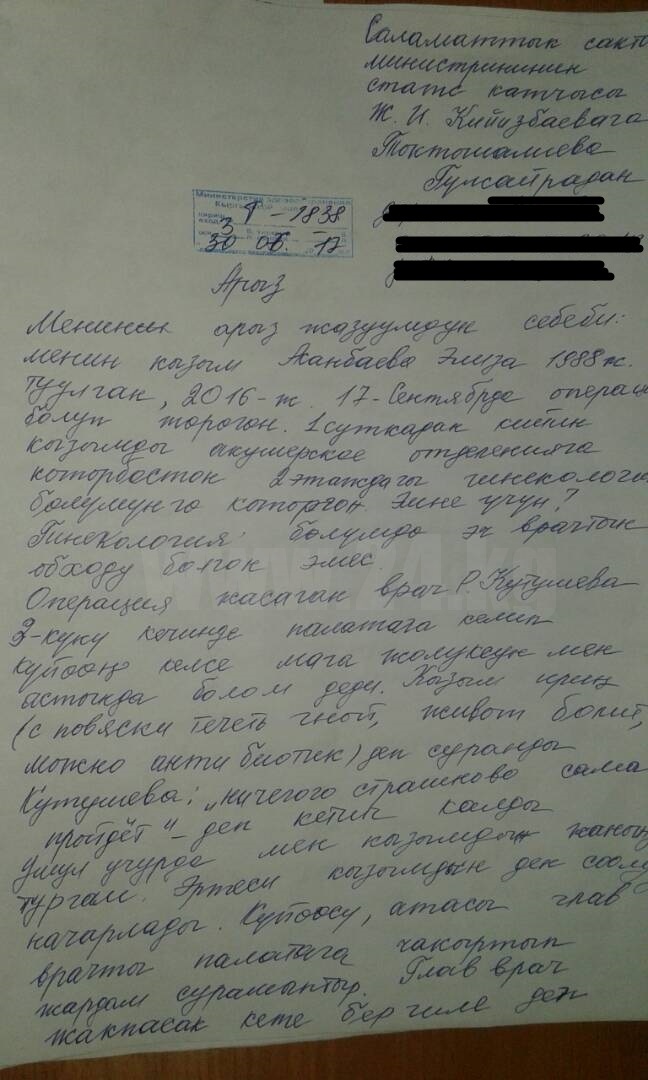 Саламаттык сакт
министрининин
статс катчысы
Ж. И. Кийизбаевага
Токтошалиева
Гулсайрадан
Министерство здравоохранения
3 1-1838
30 06. 17
Арыз
Менинин арыз жазуумдун себеби:
менин кызым Жанбаева Элиза 1988ж.
туулган, 2016-ж. 17-Сентябрде операци
болуп торогон. 1 суткадан кийин
кызымды акушерское отделенияга
которбостон 2 этаждагы гинекологи
болумунго которгон. Эмне учун?
Гинекология болумдо эч врачтын
обходу болгон эмес.
Wgw24.kg
Операция жасаган врач Р. Кутушева
3-куну кечинде палатага келип
куйооң келсе мага жолуксун мен
астында болом деди. Кызым ириң
(с повяски течеть гной, живот болит,
можно анти биотик) деп суранды
Кутушева: „ничегого страшново сама
пройдёт" – деп кетип калды
Ушул учурда мен кызымдын жанын
тургам. Эртеси кызымдын ден соолу
начарлады. Куйоосу, атасы глав
врачты палатага чакыртып
жардам сурашыптыр. Глав врач
жакпасак кете бергиле деп